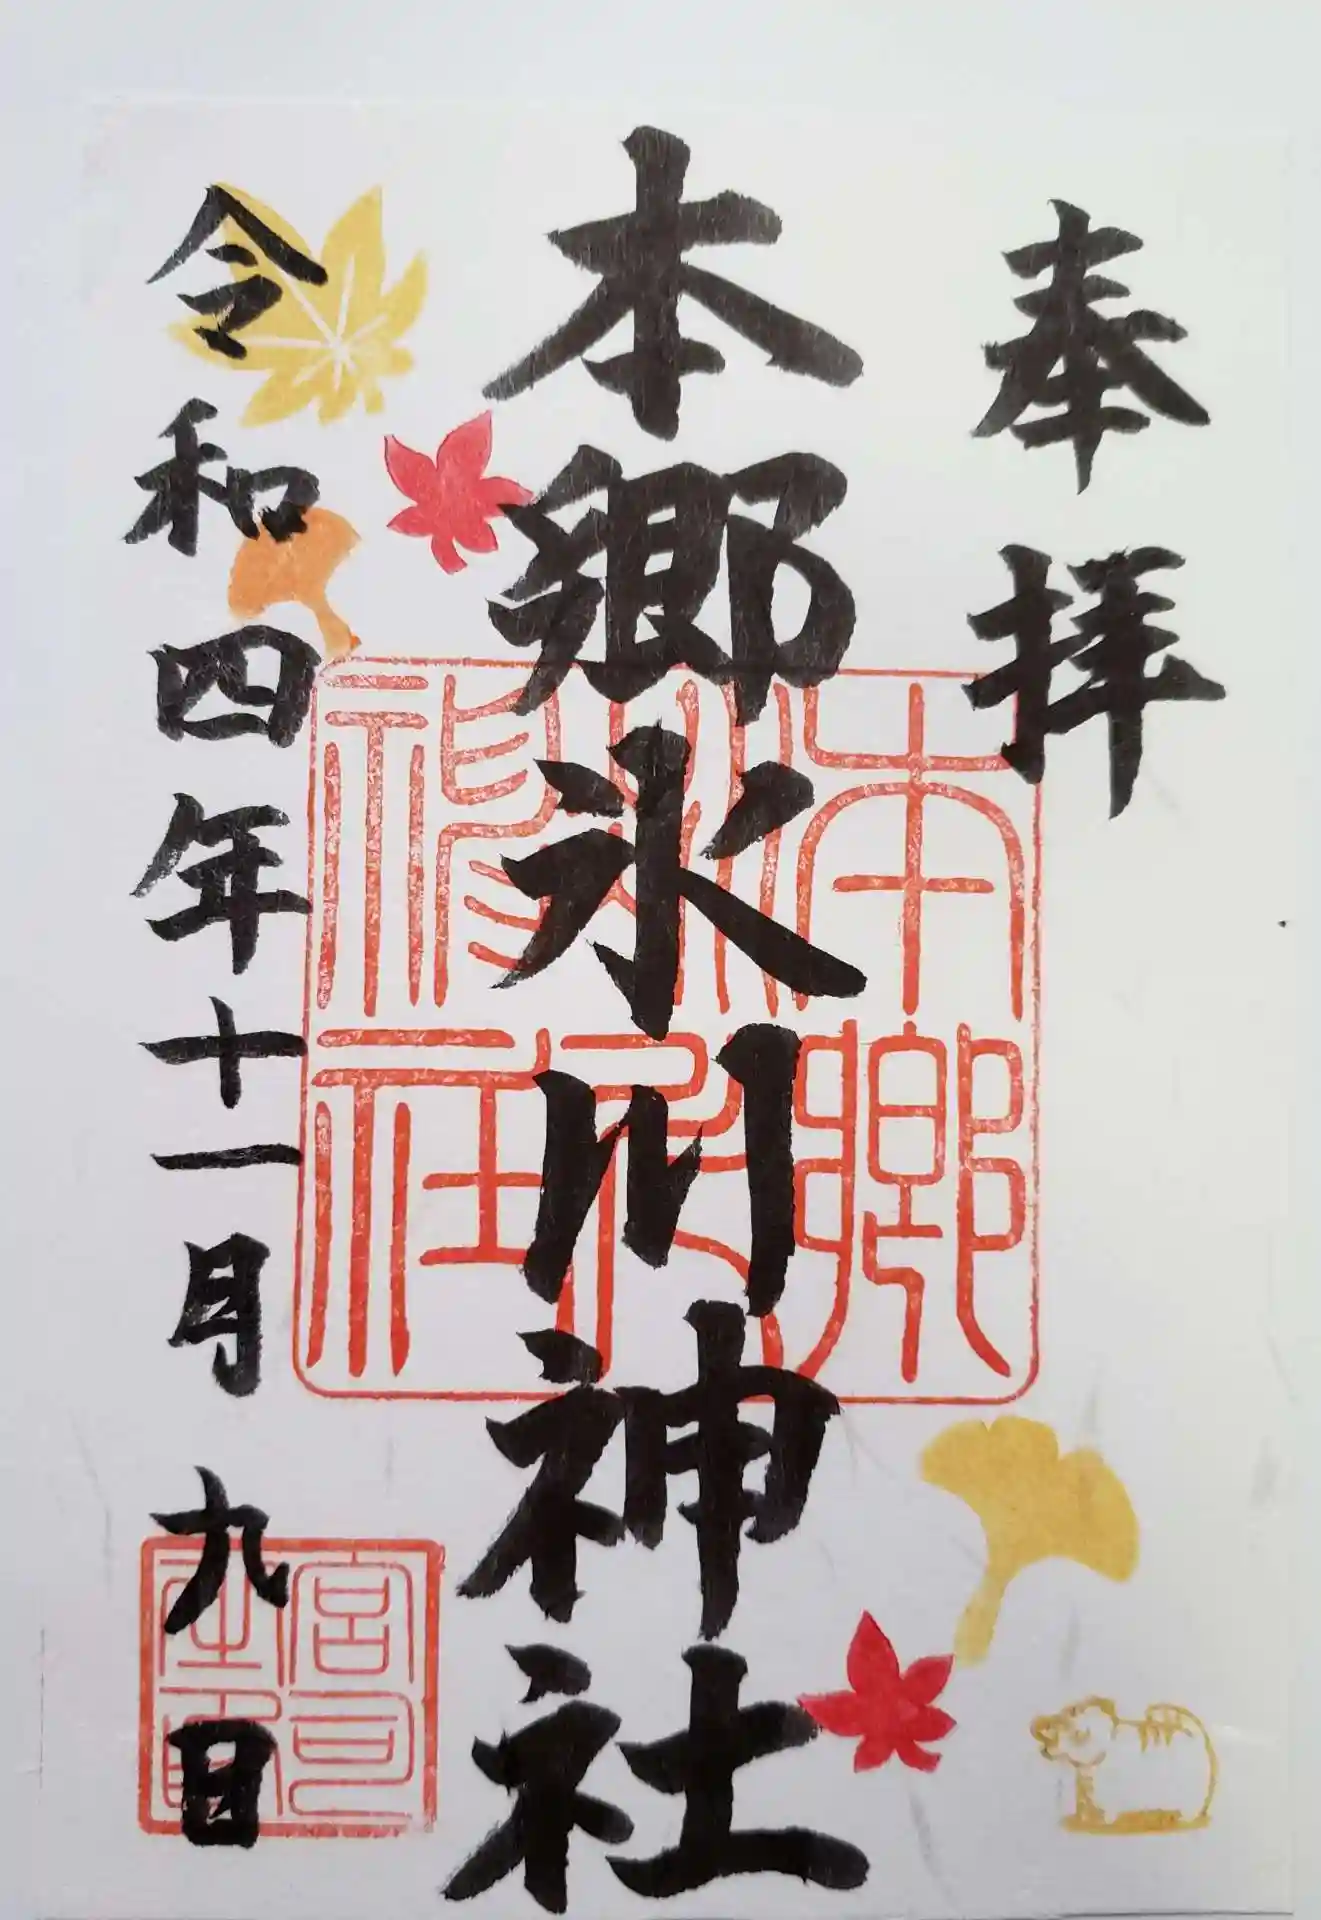 奉拝
本郷氷川神社
令和四年十一月九日
本郷
神社
宮司
之印